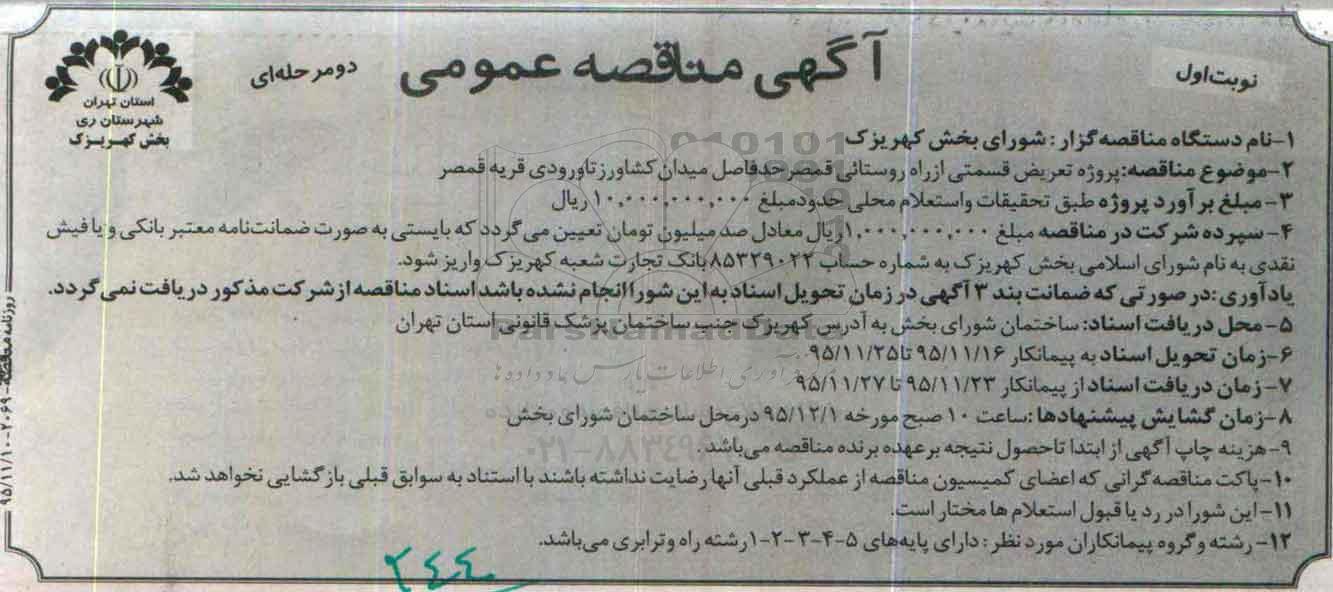 نوبت اول
آگهی مناقصه عمومی
دو مرحله‌ای
استان تهران
شهرستان ری
بخش کهریزک
۱-نام دستگاه مناقصه گزار : شورای بخش کهریزک
۲-موضوع مناقصه:پروژه تعریض قسمتی ازراه روستائی قمصرحدفاصل میدان کشاورزتاورودی قریه قمصر
۳- مبلغ برآورد پروژه طبق تحقیقات واستعلام محلی حدودمبلغ ۱۰,۰۰۰,۰۰۰,۰۰۰ ریال
۴- سپرده شرکت در مناقصه مبلغ ۱,۰۰۰,۰۰۰,۰۰۰ریال معادل صد میلیون تومان تعیین می‌گردد که بایستی به صورت ضمانت‌نامه معتبر بانکی و یا فیش
نقدی به نام شورای اسلامی بخش کهریزک به شماره حساب ۸۵۳۲۹۰۲۲ بانک تجارت شعبه کهریزک واریز شود.
یادآوری:در صورتی که ضمانت بند ۳ آگهی در زمان تحویل اسناد به این شورا انجام نشده باشد اسناد مناقصه از شرکت مذکور دریافت نمی‌گردد.
۵- محل دریافت اسناد: ساختمان شورای بخش به آدرس کهریزک جنب ساختمان پزشک قانونی استان تهران
۶-زمان تحویل اسناد به پیمانکار ۹۵/۱۱/۱۶ تا۹۵/۱۱/۲۵
۷- زمان دریافت اسناد از پیمانکار ۹۵/۱۱/۲۳ تا ۹۵/۱۱/۲۷
۸-زمان گشایش پیشنهادها :ساعت ۱۰ صبح مورخه ۹۵/۱۲/۱ درمحل ساختمان شورای بخش
۹-هزینه چاپ آگهی از ابتدا تاحصول نتیجه برعهده برنده مناقصه می‌باشد.
۱۰-پاکت مناقصه‌گرانی که اعضای کمیسیون مناقصه از عملکرد قبلی آنها رضایت نداشته باشند با استناد به سوابق قبلی بازگشایی نخواهد شد.
۱۱- این شورا در رد یا قبول استعلام ها مختار است.
۱۲- رشته وگروه پیمانکاران مورد نظر : دارای پایه‌های ۵-۴-۳-۲-۱رشته راه وترابری می‌باشد.
روزنامه مناقصه -۲۰۶۹-۹۵/۱۱/۱۰
ParsNamadData
۰۲۱-۸۸۳۴۹۶